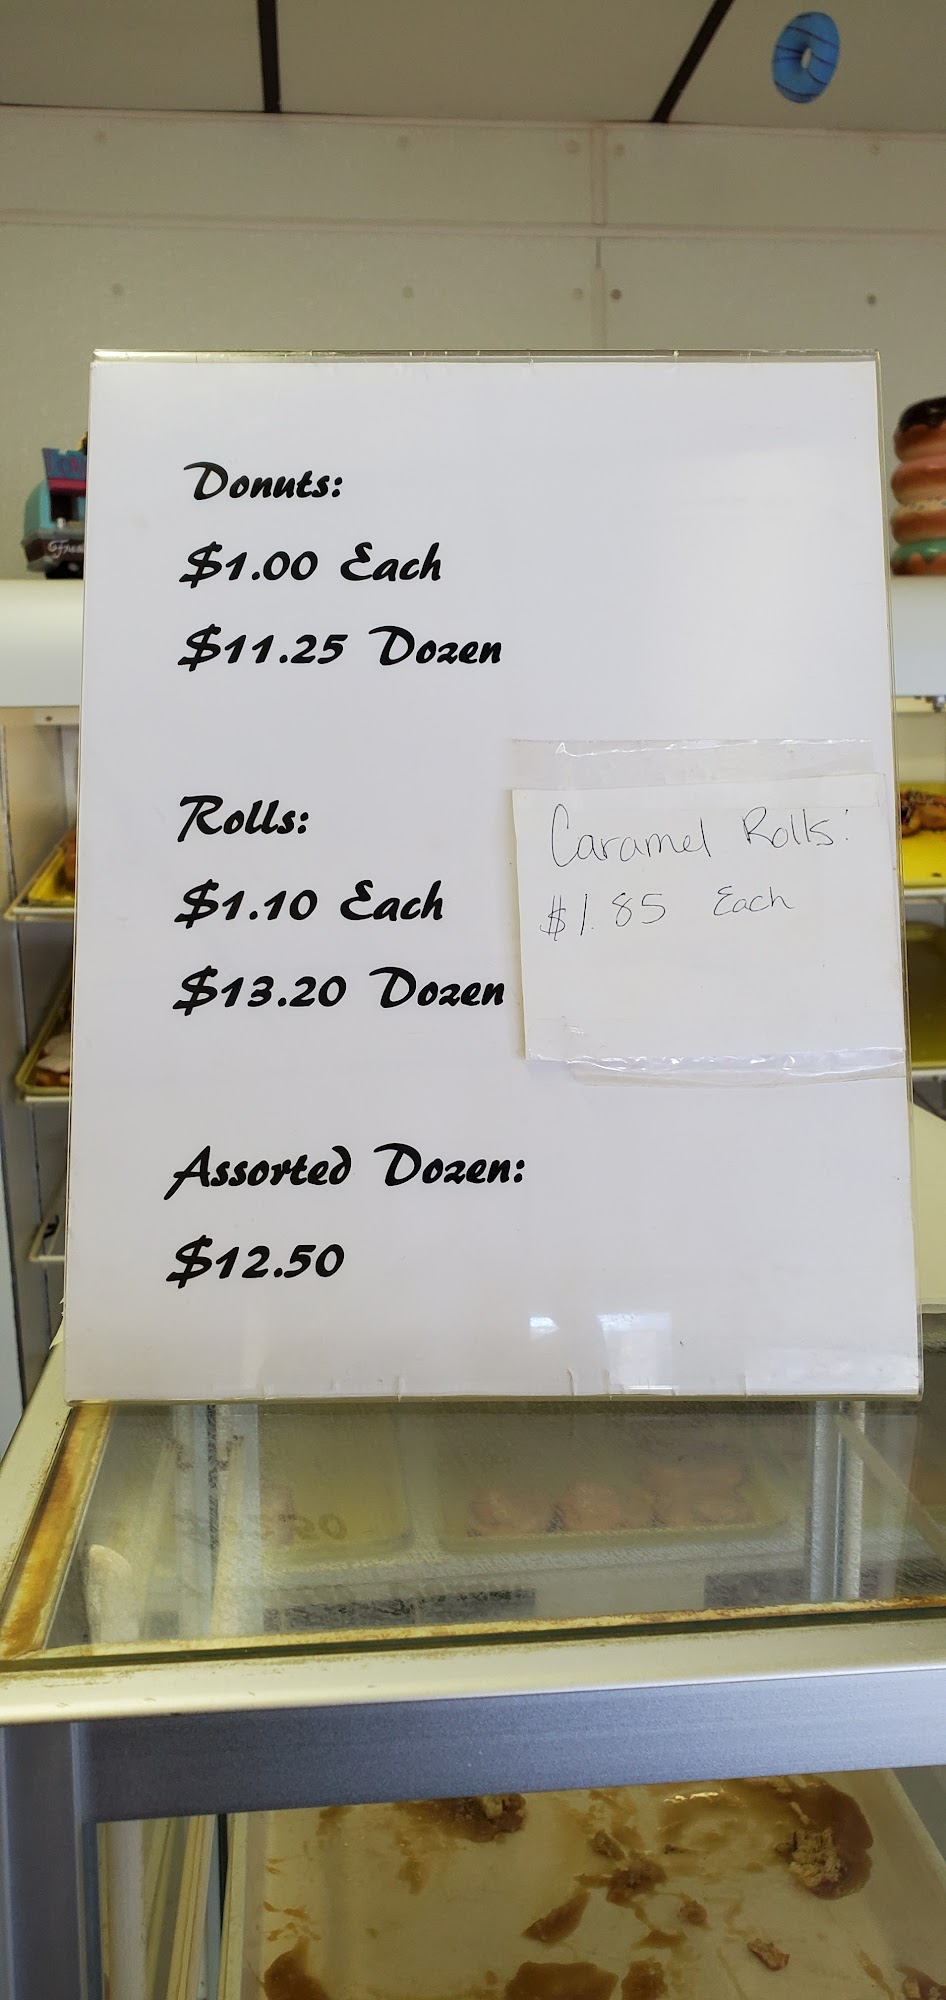 Donuts:
$1.00 Each
$11.25 Dozen
Rolls:
$1.10 Each
$13.20 Dozen
Caramel Rolls:
$1.85 Each
Assorted Dozen:
$12.50